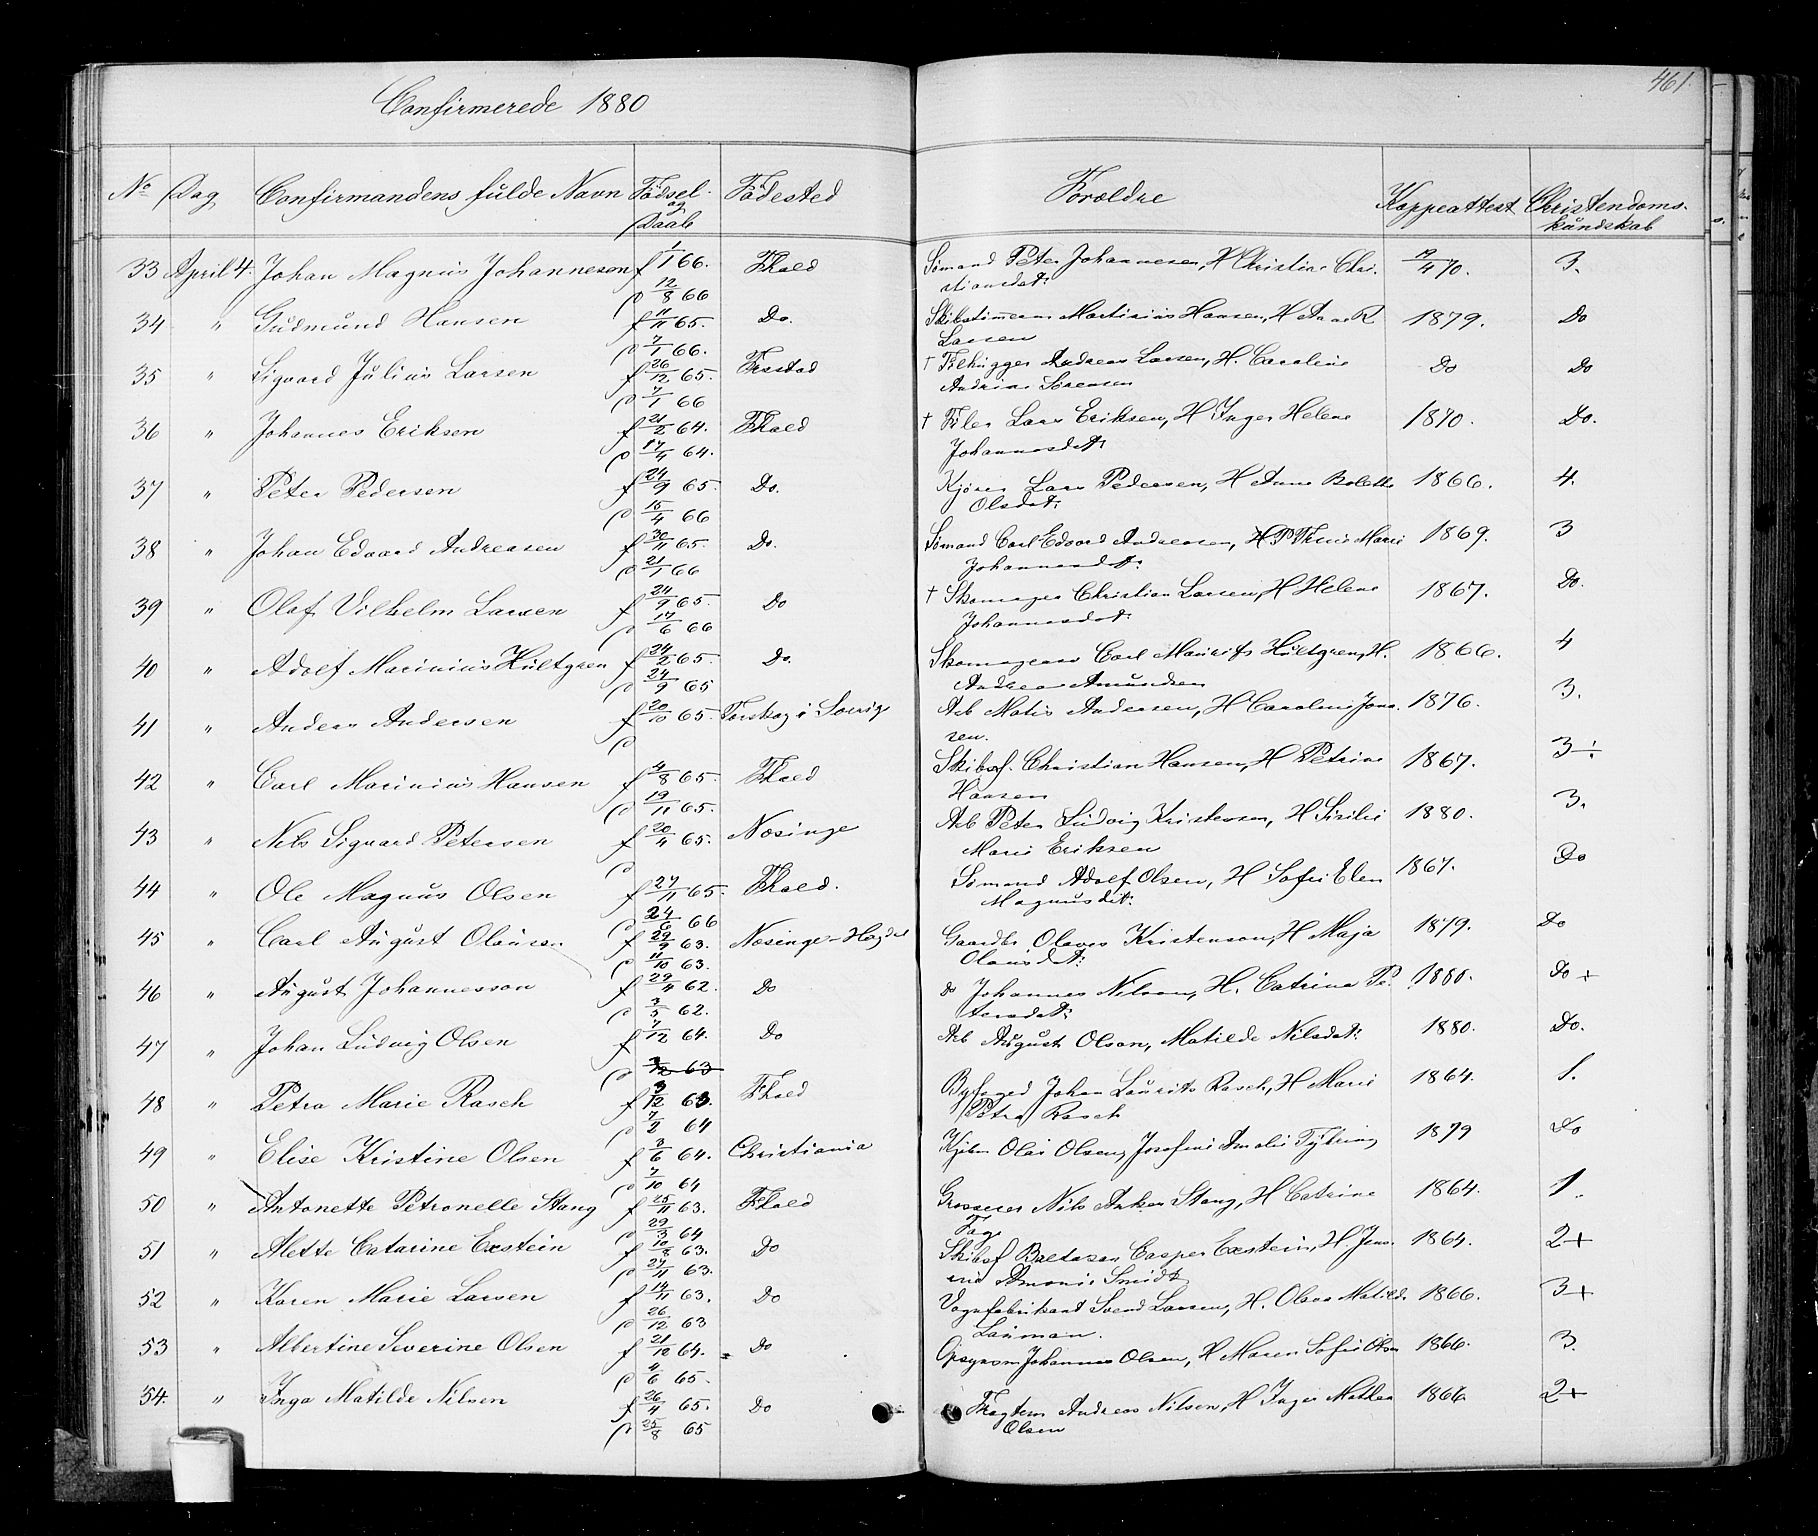 461
Confirmerede 1880
No Dag Confirmandens fulde Navn Födsel og Daab Födested Forældre Koppeattest Christendoms-
kundskab
33 April 4. Johan Magnus Johannesen f 1/1 66. Fhald Sømand Peter Johannesen, H Christine Chri- 4 70. 3.
d 12/8 66 stiansdat:
34 " Gudmund Hansen f 11/11 65. Do. Skibstømmerm Martinius Hansen, H Anne R 1879. Do
d 7/1 66. Larsen
35 " Sigvard Julius Larsen f 26/12 65. Frestad † Andreas Larsen, H. Caroline Do Do
d 7/1 66 Andrine Sørensen
36 " Johannes Eriksen f 21/2 64. Fhald † Filer Lars Eriksen, H Inger Helene 1870. Do.
d 17/4 64. Johannesdat:
37 " Peter Pedersen f 24/9 65. Do. Kjører Lars Pedersen, H Anne Bolette 1866. 4.
d 15/4 66 Olsdat:
38 " Johan Edvard Andreasen f 30/11 65. Do. Sømand Carl Edvard Andreasen, Marie 1869. 3
d 21/1 66 Johannesdat:
39 " Olaf Vilhelm Larsen f 24/9 65. Do † Skomager Christian Larsen, H Helene 1867. Do.
d 17/6 66 Johannesdat:
40 " Adolf Marinius Hultgren f 24/2 65. Do. Skomager Carl Maurits Hultgren, H. 1866. 4
d 24/9 65 Andrea Amundsen
41 " Anders Andersen f 20/10 65. Torskog i Sverig Arb Matis Andersen, H Caroline Jons- 1876. 3.
d sen.
42 " Carl Marinius Hansen f 4/8 65. Fhald Skibsf. Christian Hansen, H Petrine 1867. 3÷
d 19/11 65. Hansen
43 " Nils Sigvard Petersen f 20/4 65. Næsinge Arb Peter Ludvig Kristensen, H Sisilie 1880. 3.
d Marie Eriksen
44 " Ole Magnus Olsen f 27/11 65. Fhald. Sømand Adolf Olsen, H Sofie Elen 1867. Do
d 24/6 66 Magnusdat:
45 " Carl August Olausen f 29/9 63. Næsinge-Hogdal Gaardbr Olaves Kristenson, H Maja 1879. Do
d 11/10 63. Olausdat:
46 " August Johannesson f 29/4 62. Do do Johannes Nilson, H. Catrina Pe- 1880. Do +
d 3/5 62. tersdat:
47 " Johan Ludvig Olsen f 7/12 64. Do Arb August Olson, Matilde Nilsdat: 1880. Do.
d 3/12 63
48 " Petra Marie Rasch f 9/12 63. Fhald Byfoged Johan Laurits Rasch, H Marie 1864. 1.
d 7/2 64 Petra Rasch
49 " Elise Kristine Olsen f 3/6 64. Christiania Kjøbm Olai Olsen, Josefine Amalie 1879 Do
d 7/10 64
50 " Antonette Petronelle Stang f 25/11 63. Fhald Grosserer Nils Anker Stang, H Catrine 1864. 1.
d 29/3 64 Fage
51 " Alette Catarine Exstein f 10/8 63. Do Skibsf Baltasar Casper Exstein, H. Jens- 1864. 2+
d 27/11 63. Smidt
52 " Karen Marie Larsen f 14/11 63. Do Vognfabrikant Svend Larsen, H. Olava Matilde 1866. 3+
d 26/12 63 Lauman.
53 " Albertine Severine Olsen f 21/10 64. Do Opsynsm Johannes Olsen, H Maren Sofie Olsen 1866. 3.
d 4/6 65.
54. " Inga Matilde Nilsen f 26/4 65. Do Fragtem Andreas Nilsen, H Inger Mathea 1866 2+
d 25/8 65 Olsen